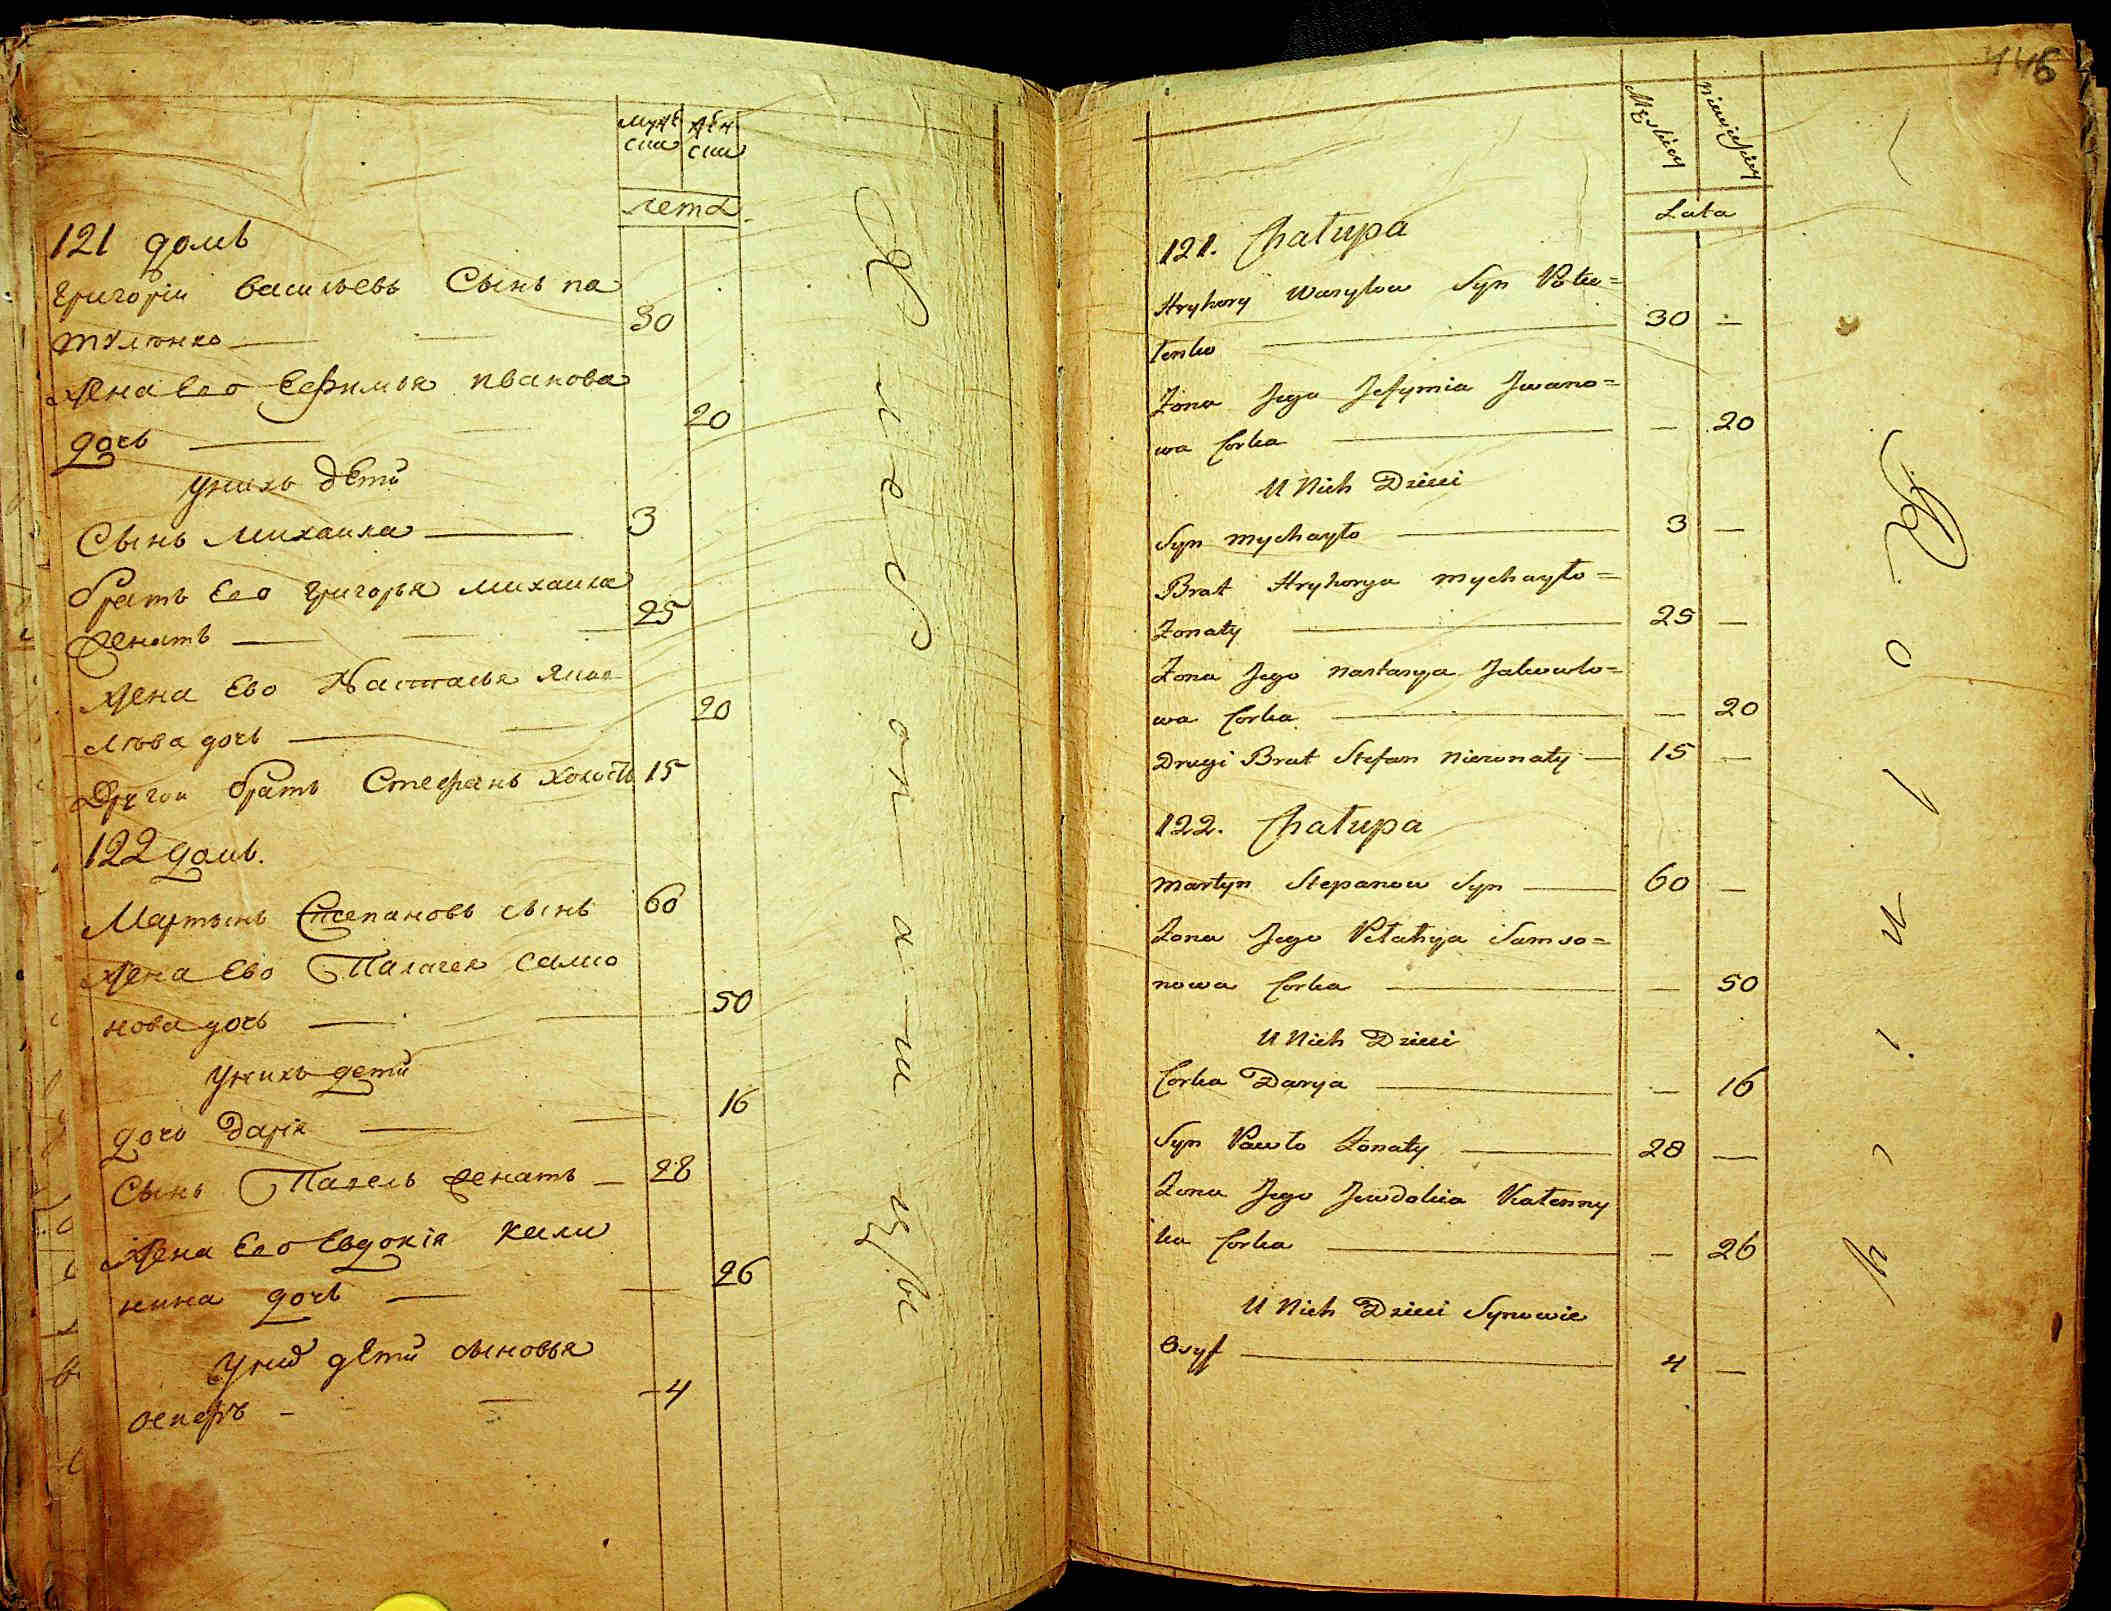 мужеска женска
лета
121 домъ
Григорїи Васильевъ Сынъ па
тулонко 30
Жена Ево Ефимья иванова
дочь 20
у нихъ дети
Сынъ михаила 3
братъ Ево григорья михаила
женатъ 25
Жена Ево Настасья яков
лева дочь 20
Другои братъ Стефанъ холостъ 15
122 домъ.
Мартынъ Степановъ сынъ 60
Жена Ево Палагея самсо
нова дочь 50
у нихъ дети
дочь Дарїя 16
Сынъ Павелъ женатъ 28
Жена Ево Евдокїя кали
нина дочь 26
у них дети сыновья
осипъ 4
Хлебопашцы
446
Męskiey
Lata
121. Chałupa
Hryhory Wasylow Syn Potu=
lenko 30 —
Żona Jego Jefymia Jwano=
wa Corka — 20
U Nich Dzieci
Syn Mychayło 3 —
Brat Hryhorya Mychayło=
Żonaty 25 —
Żona Jego Nastasya Jakowlo=
wa Corka — 20
Drugi Brat Stefan Nieżonaty 15 —
122. Chałupa
Martyn Stepanow Syn 60 —
Żona Jego Pełahya Samso=
nowa Corka — 50
U Nich Dzieci
Corka Darya — 16
Syn Pawło Żonaty 28 —
Żona Jego Jewdokia Kalenny
ka Corka — 26
U Nich Dzieci Synowie
Osyf 4 —
Rolnicy